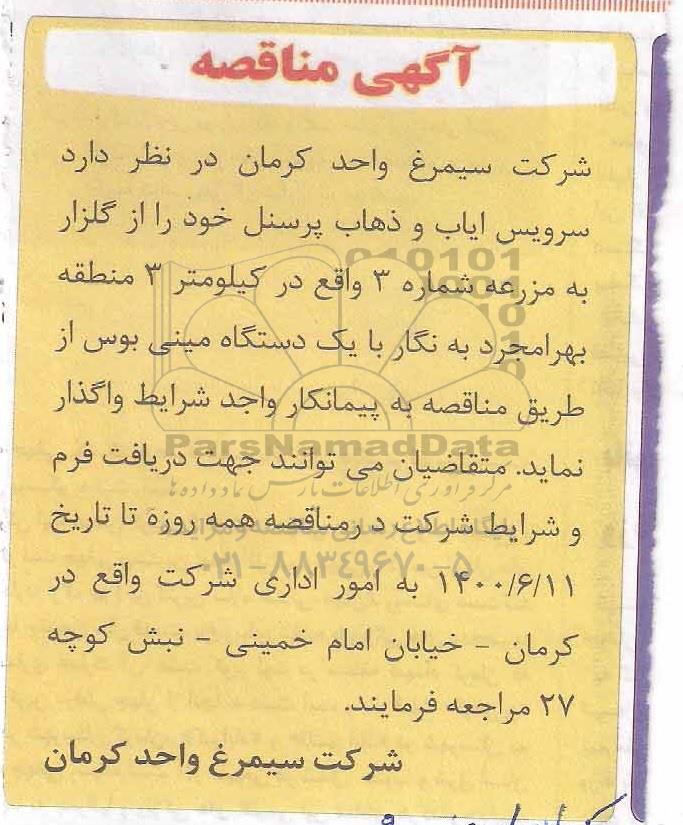 آگهی مناقصه
شرکت سیمرغ واحد کرمان در نظر دارد
سرویس ایاب و ذهاب پرسنل خود را از گلزار
به مزرعه شماره ۳ واقع در کیلومتر ۳ منطقه
بهرامجرد به نگار با یک دستگاه مینی بوس از
طریق مناقصه به پیمانکار واجد شرایط واگذار
ParsNamadData
نماید. متقاضیان می توانند جهت دریافت فرم
مرکز فرآوری اطلاعات پارس نماد داده ها
و شرایط شرکت د رمناقصه همه روزه تا تاریخ
۰۲۱-۸۸۳۴۹۶۷۰-۵
۱۴۰۰/۶/۱۱ به امور اداری شرکت واقع در
کرمان - خیابان امام خمینی - نبش کوچه
۲۷ مراجعه فرمایند.
شرکت سیمرغ واحد کرمان